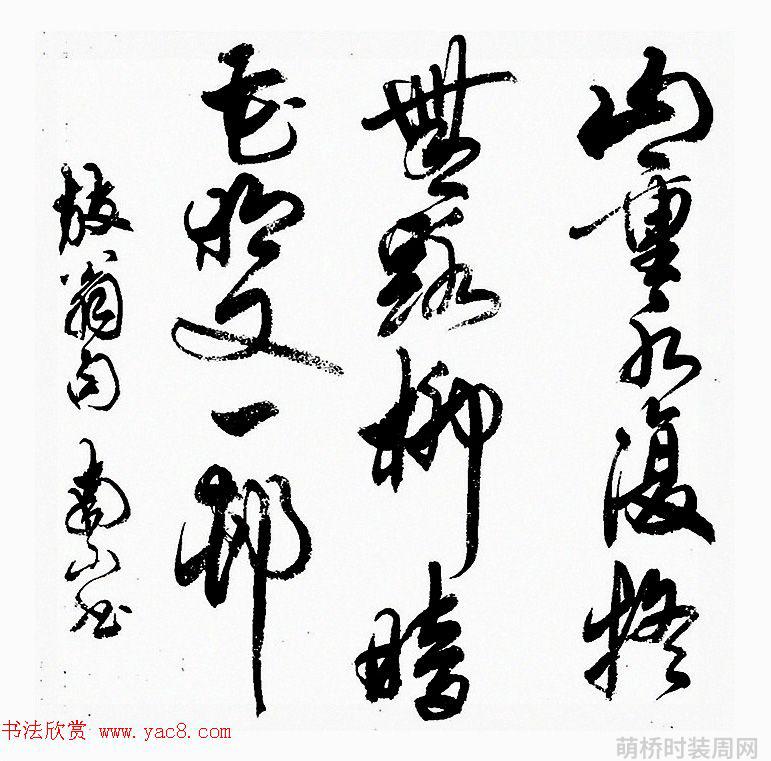 山重水復疑
無路柳暗
花明又一邨
放翁句
书法欣赏 www.yac8.com
萌桥时装周网